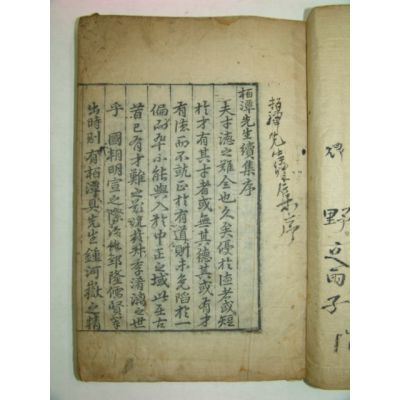 野
雨子
栢潭先生續集序
栢潭先生續集序
夫才德之難全也久矣優於德者或短
於才有其才者或無其德其或有才
有德而不就正於有道則未免陷於一
偏而卒不能與入於中正之域此在古
昔已有才難之歎矧茲叔季淆漓之世
乎 國朝明宣之際治化郅隆儒賢輩
出時則有栢潭具先生鍾河嶽之精